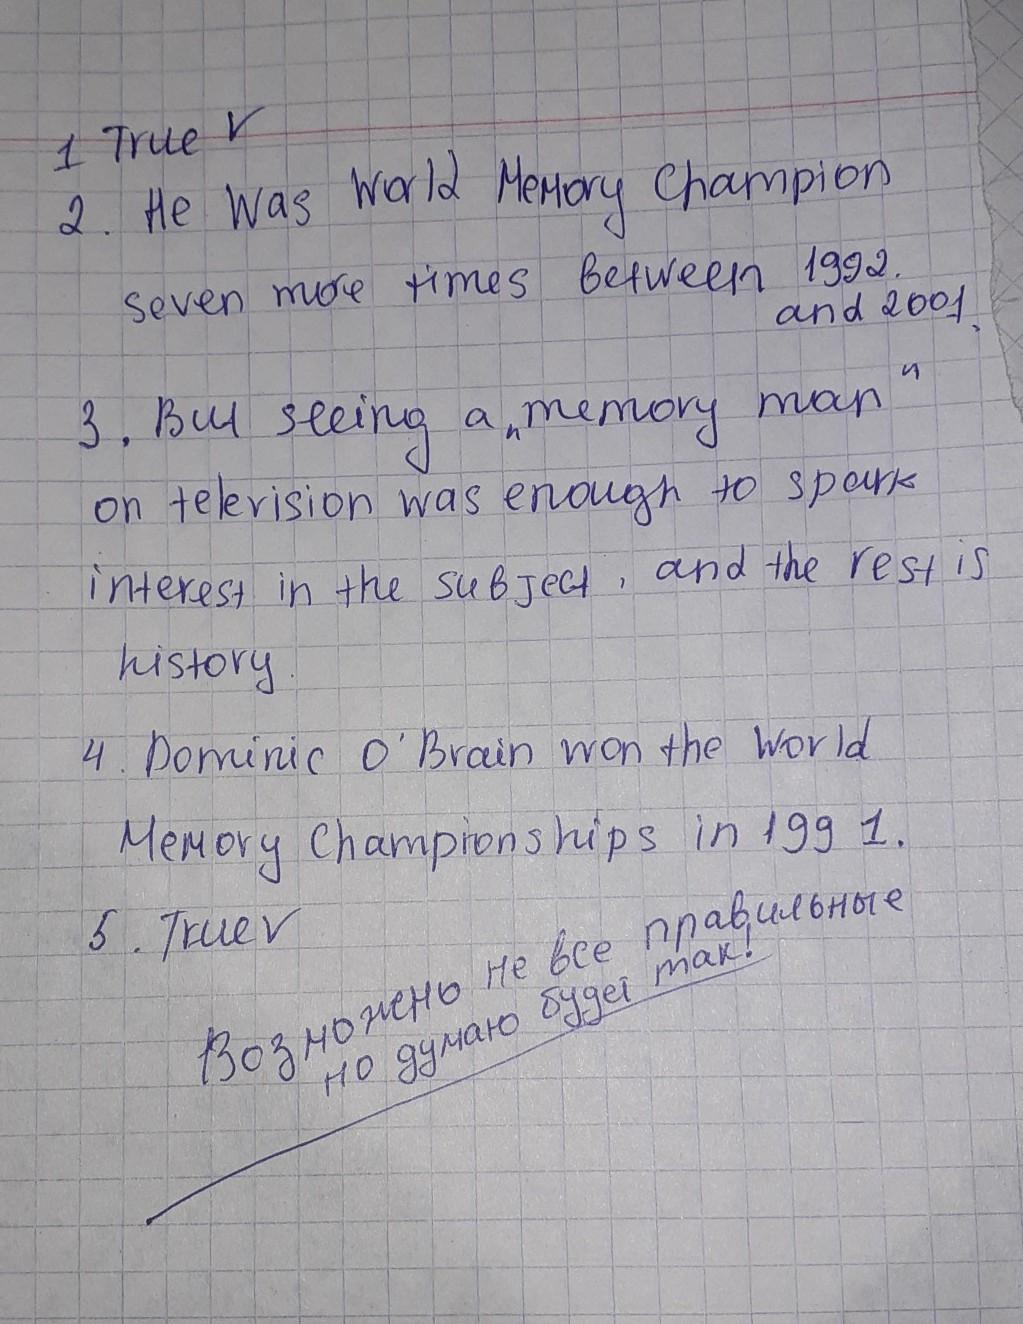 1 True V
2. He Was World Memory Champion
seven more times between 1992.
and 2001.
3. But seeing a „memory man"
on television was enough to spark
interest in the subject, and the rest is
history.
4. Dominic O'Brain won the World
Memory Championships in 1991.
5. True V
Возможено не все правильные
но думаю будет так!